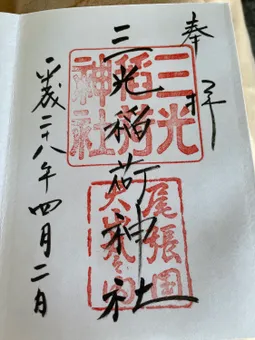 奉拝
三光稲荷神社
平成二八年四月二日
三光
稲荷
神社
尾張国